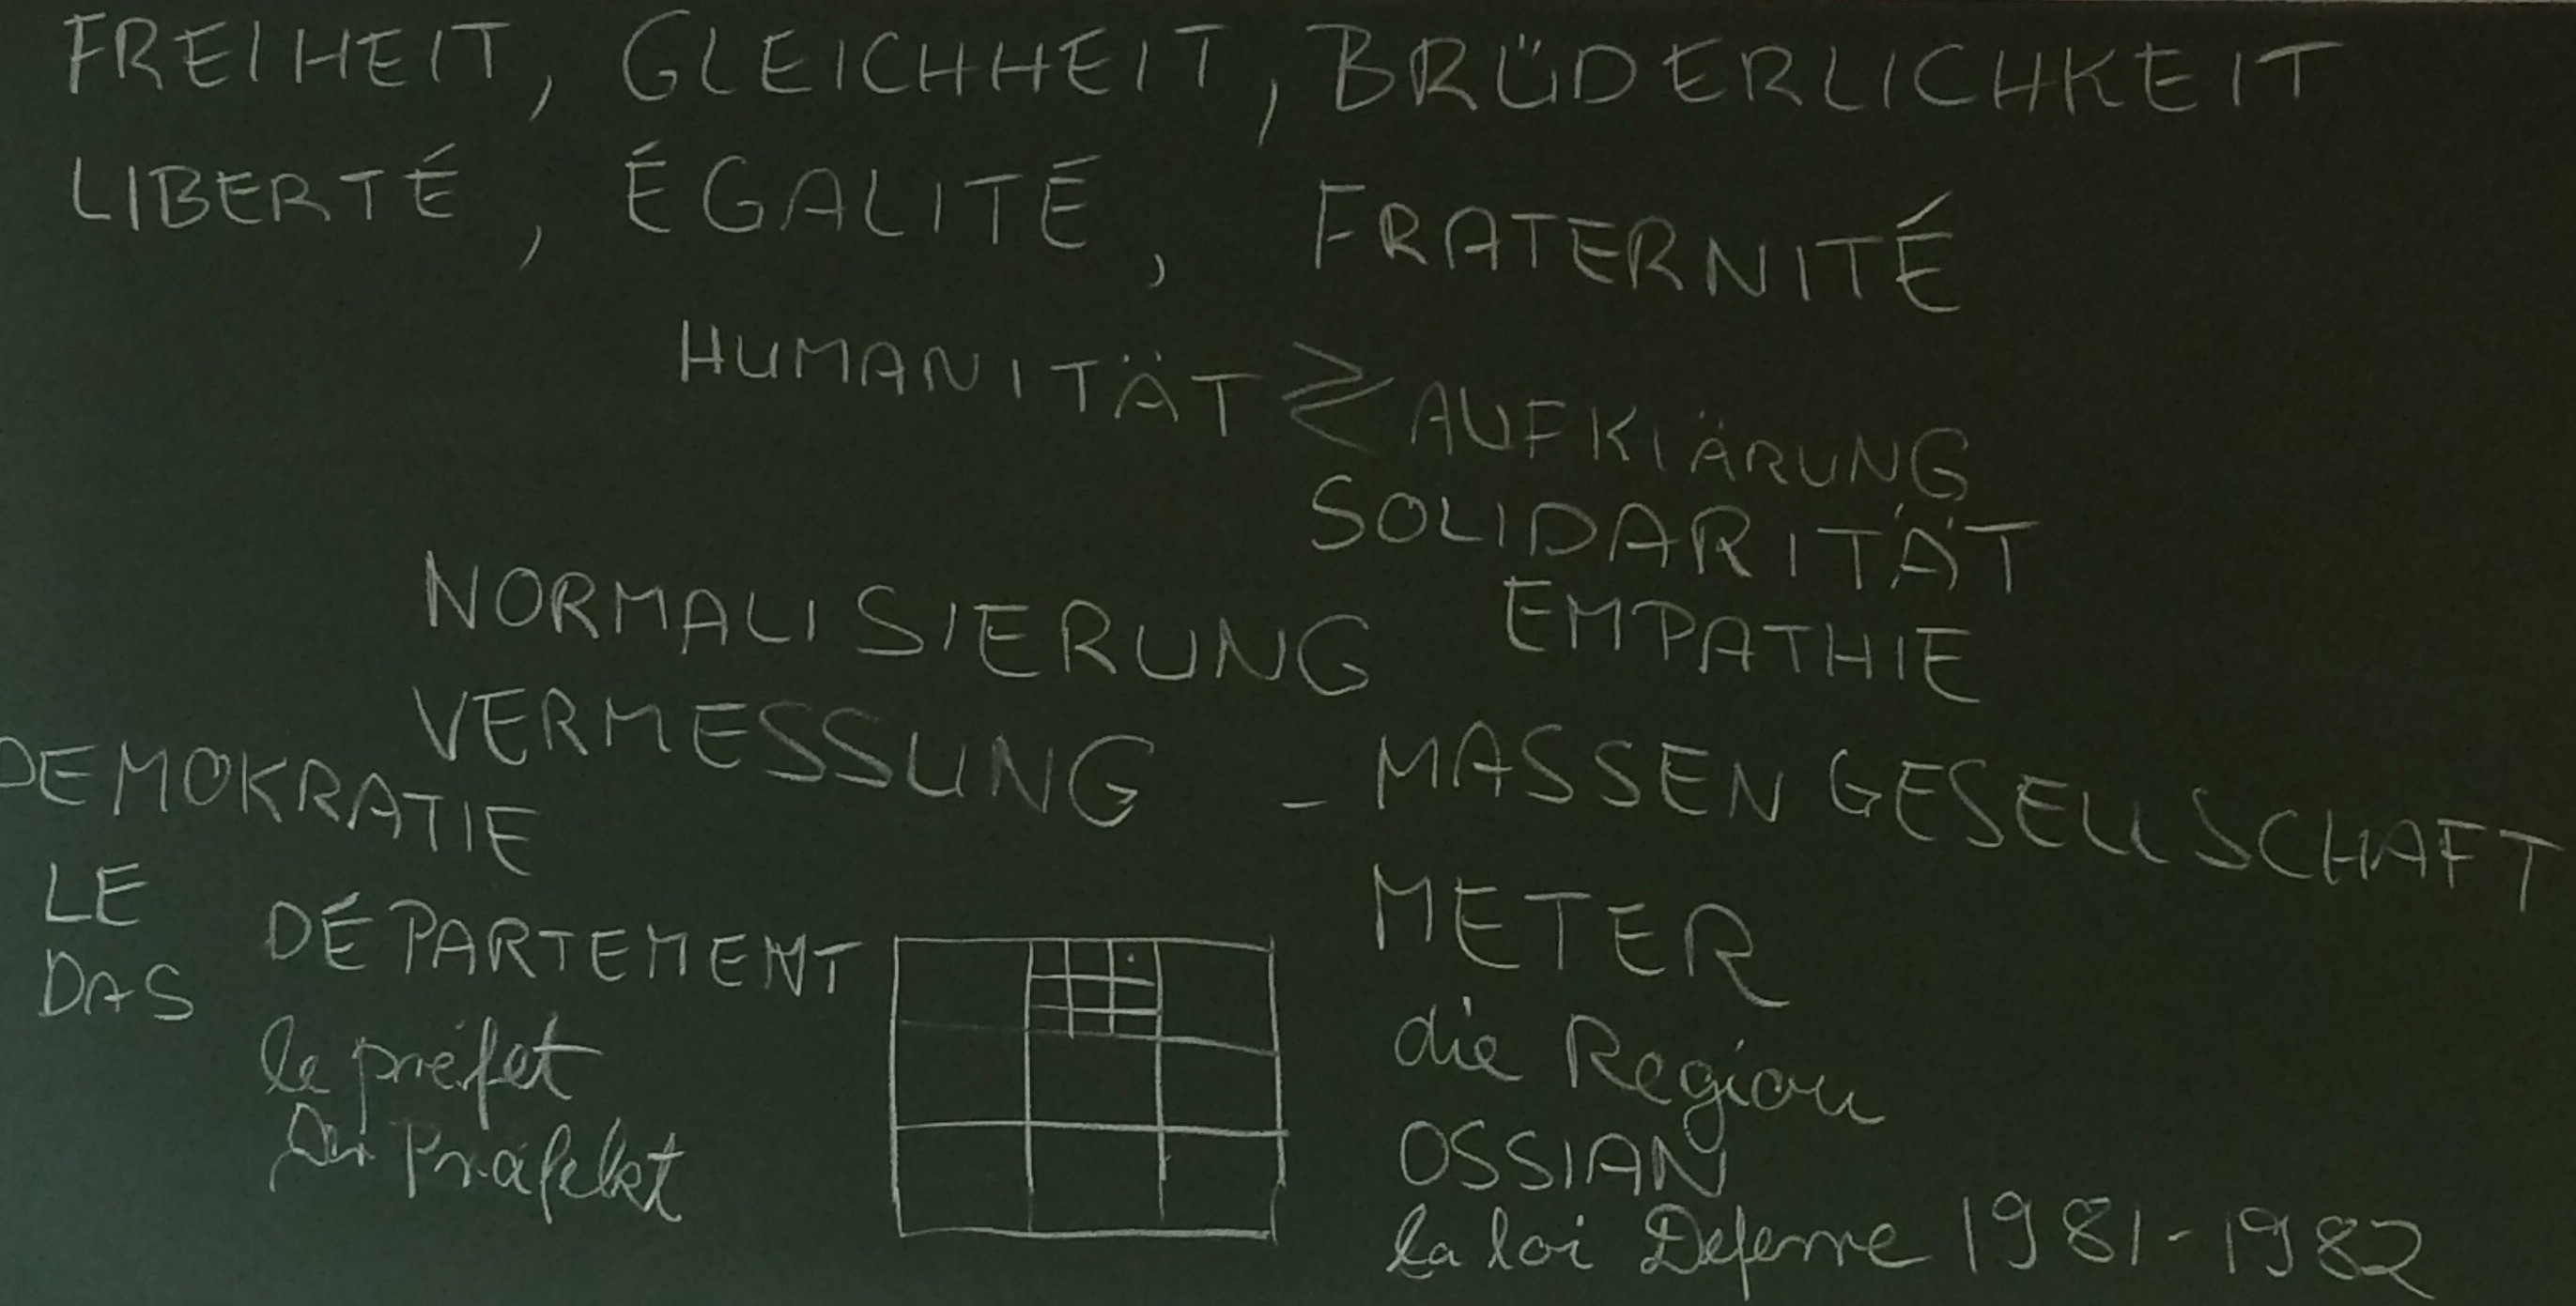 FREIHEIT, GLEICHHEIT, BRÜDERLICHKEIT
LIBERTÉ, ÉGALITÉ, FRATERNITÉ
HUMANITÄT ≷ AUFKLÄRUNG
SOLIDARITÄT
EMPATHIE
NORMALISIERUNG
VERMESSUNG - MASSENGESELLSCHAFT
DEMOKRATIE
METER
LE
DAS
DÉPARTEMENT
le préfet
Der Präfekt
die Region
OSSIAN
la loi Deferre 1981-1982